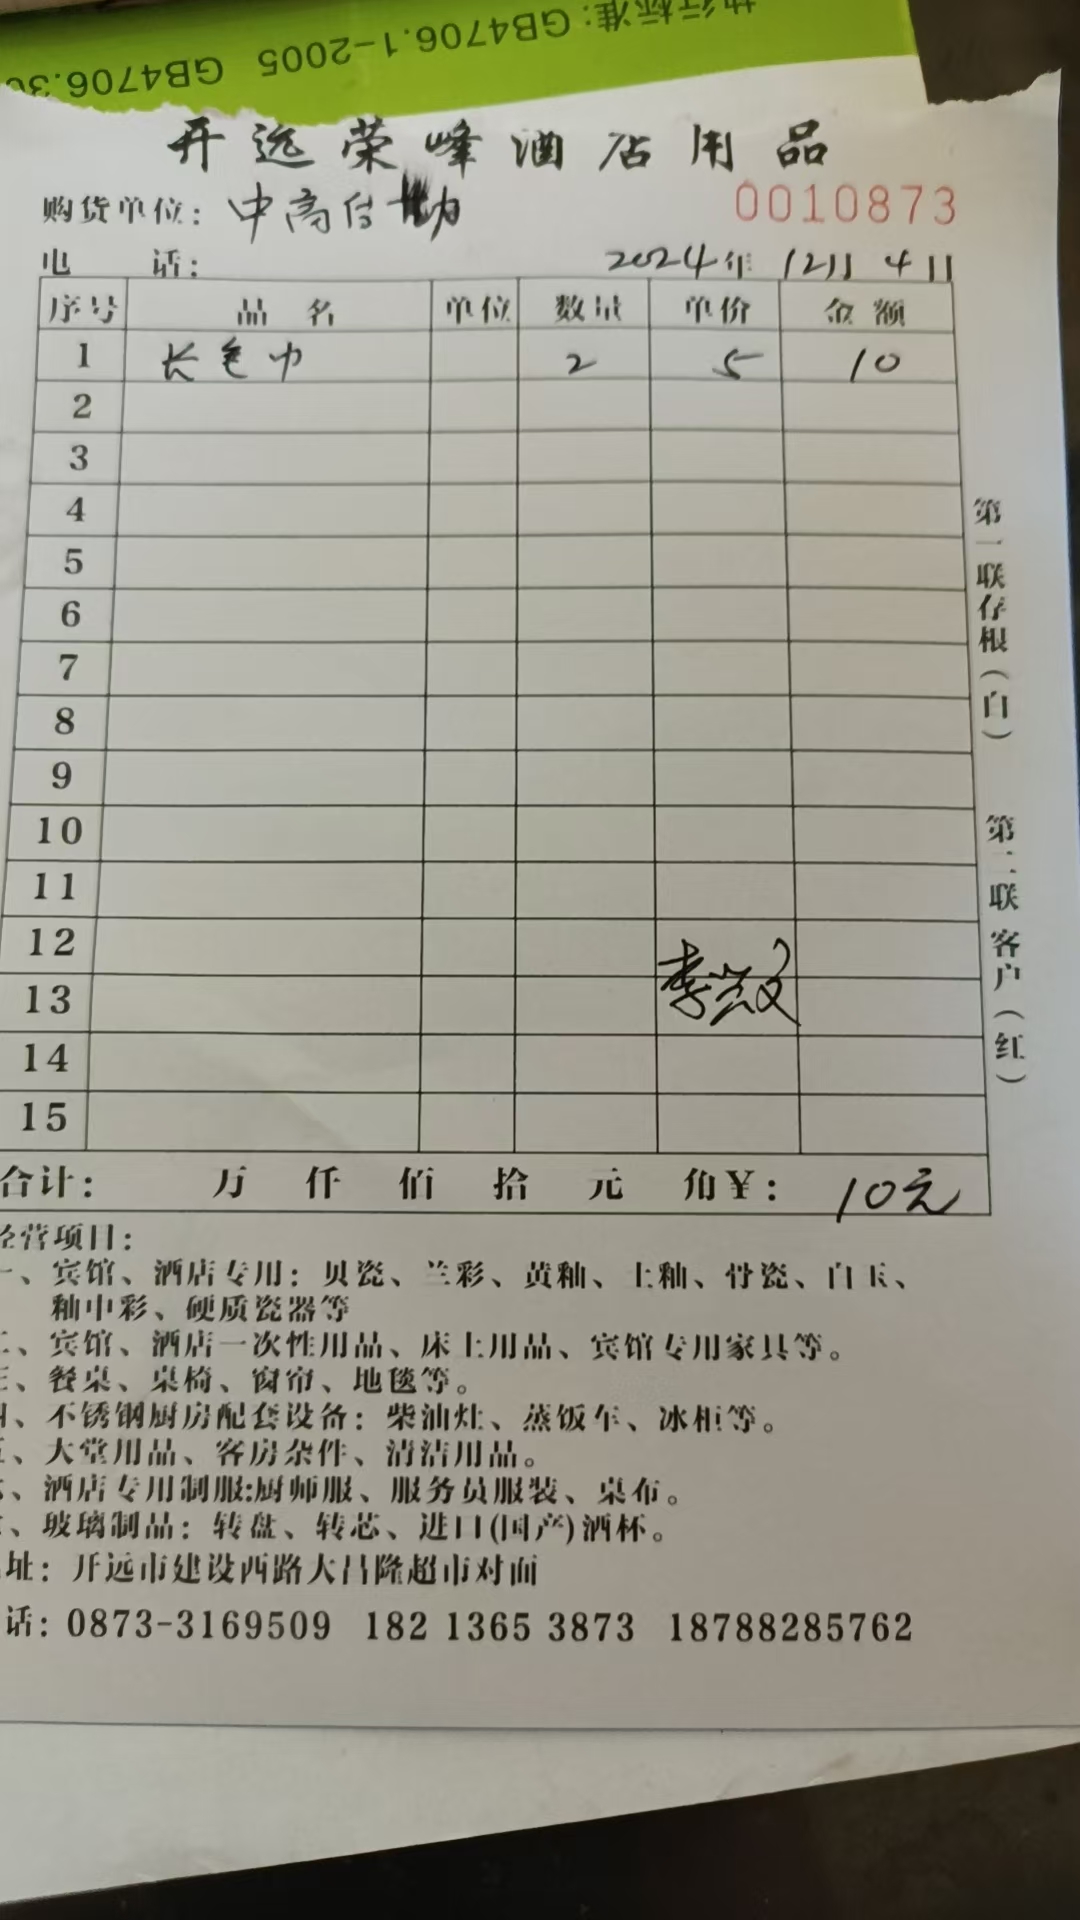 执行标准：GB4706.1-2005 GB4706.30
开远荣峰酒店用品
购货单位：中高 0010873
电 话： 2024年 12月 4日
序号 品名 单位 数量 单价 金额
1 长毛巾 2 5 10
2
3
4
5
6
7
8
9
10
11
12
13
14
15
李
合计： 万 仟 佰 拾 元 角￥： 10元
第一联存根（白）
第二联客户（红）
经营项目：
一、宾馆、酒店专用：贝瓷、兰彩、黄釉、土釉、骨瓷、白玉、
釉中彩、硬质瓷器等
二、宾馆、酒店一次性用品、床上用品、宾馆专用家具等。
三、餐桌、桌椅、窗帘、地毯等。
四、不锈钢厨房配套设备：柴油灶、蒸饭车、冰柜等。
五、大堂用品、客房杂件、清洁用品。
六、酒店专用制服:厨师服、服务员服装、桌布。
七、玻璃制品：转盘、转芯、进口(国产)酒杯。
地址：开远市建设西路大昌隆超市对面
话：0873-3169509 182 1365 3873 18788285762